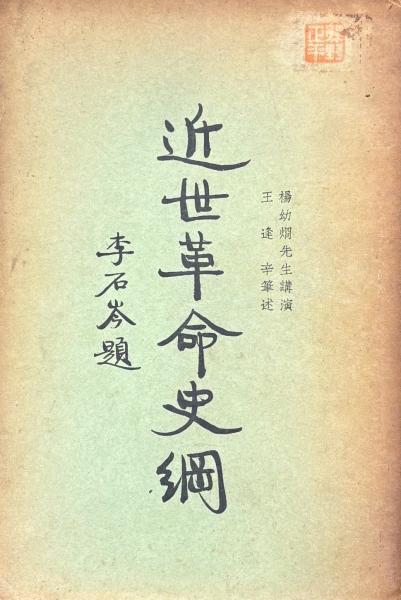 楊幼炯先生講演
王逢辛筆述
近世革命史綱
李石岑題